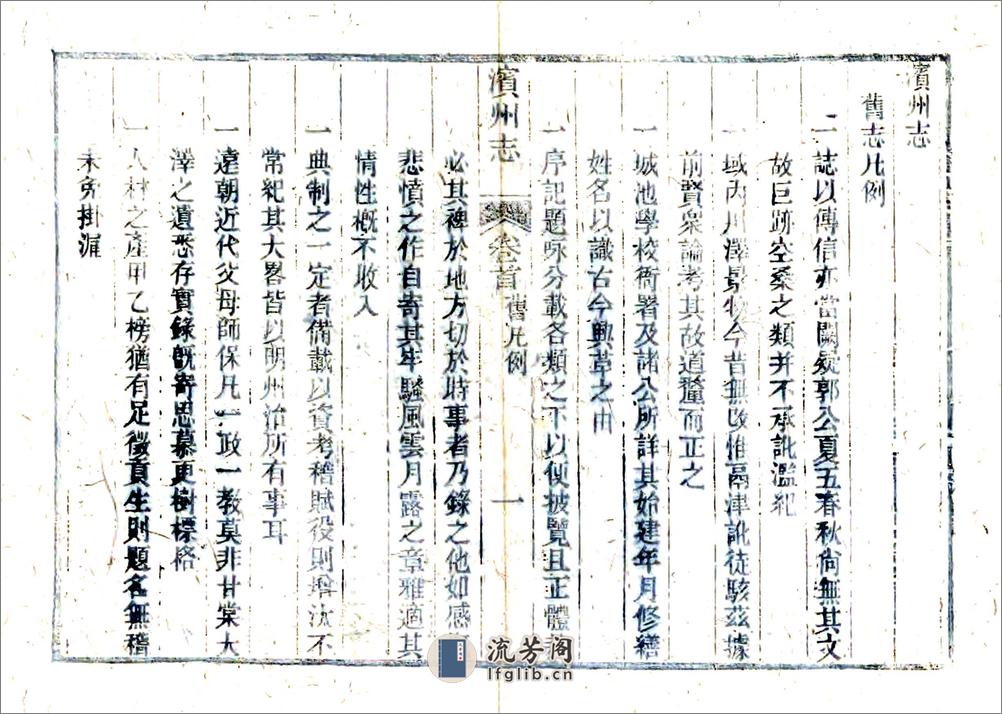 濱州志
舊志凡例
一誌以傳信亦當闕疑郭公夏五春秋尙無其文
故巨跡空桑之類并不承訛濫紀
一域內川澤景物今昔無改惟鬲津訛徒駭茲據
前賢衆論考其故道釐而正之
一城池學校衙署及諸公所詳其始建年月修繕
姓名以識古今興革之由
一序記題咏分載各類之下以便披覽且正體
濱州志
卷首
舊凡例
一
必其裨於地方切於時事者乃錄之他如感
悲憤之作自寄其牢騷風雲月露之章雅適其
情性概不收入
一典制之一定者備載以資考稽賦役則增汰不
常紀其大畧皆以明州治所有事耳
一遠朝近代父母師保凡一政一教莫非甘棠大
澤之遺悉存實錄旣寄思慕更樹標格
一人材之產甲乙榜猶有足徵貢生則題名無稽
未免掛漏
流芳阁
lfglib.cn